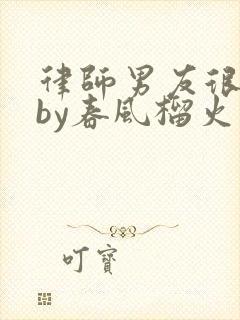 律師男友很
by春風榴火
叮寶